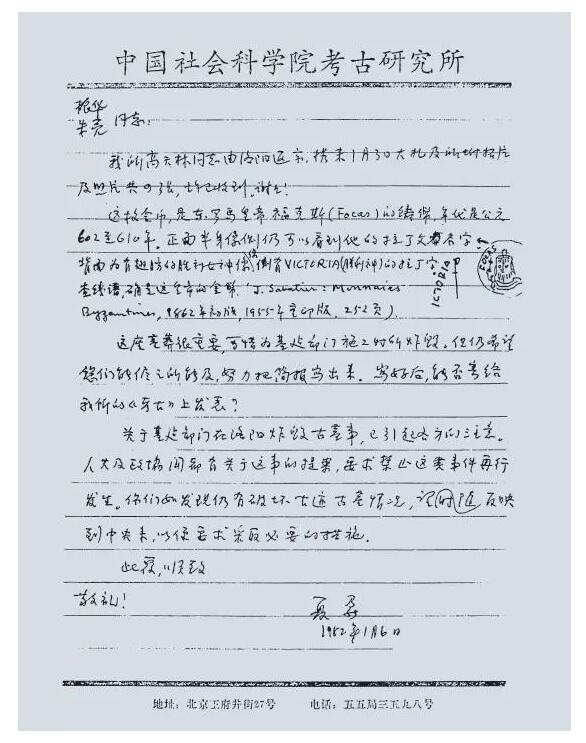 中国社会科学院考古研究所
振华
朱亮 同志:
我所高天林同志由洛阳返京,携来1月3日大札及所附拓片
及照片共4张,均已收到,谢谢!
这枚金币,是东罗马皇帝福克斯(Focas)的铸币,年代是公元
602至610年。正面半身像侧仍可以看到他的拉丁文名字
背面为有翅膀的胜利女神像,像侧有VICTORIA(胜利神)的拉丁字
查钱谱,确是这金币 (J. Sabatier: Monnaies
Byzantines, 1862年初版, 1955年重印版, 252页)。
FOCAS
ICTORIA
这座墓葬很重要,可惜为基建部门施工时所炸毁。但仍希望
您们能依之所能及,努力把简报写出来。写好后,能否寄给
我所的《考古》上发表?
关于基建部门在洛阳炸毁古墓事,已引起各方的注意。
人大及政协闻都有关于这事的提案,要求禁止这类事件再行
发生。你们如发现仍有破坏古迹古墓情况,望随时反映
到中央来,以便要求采取必要的措施。
此复,顺致
敬礼!
夏鼐
1982年1月6日
地址:北京王府井街27号 电话:五五局三五九八号